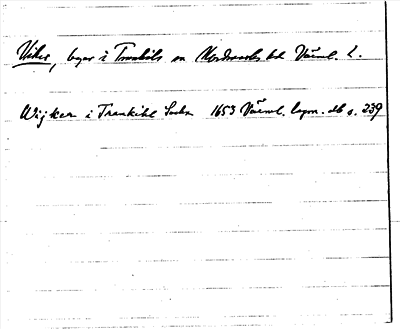 Viker, byar i Trankils sn Nordmarks hd Värml. l.
Wijker i Trankihl Sockn 1653 Värml. lagm. db s. 239